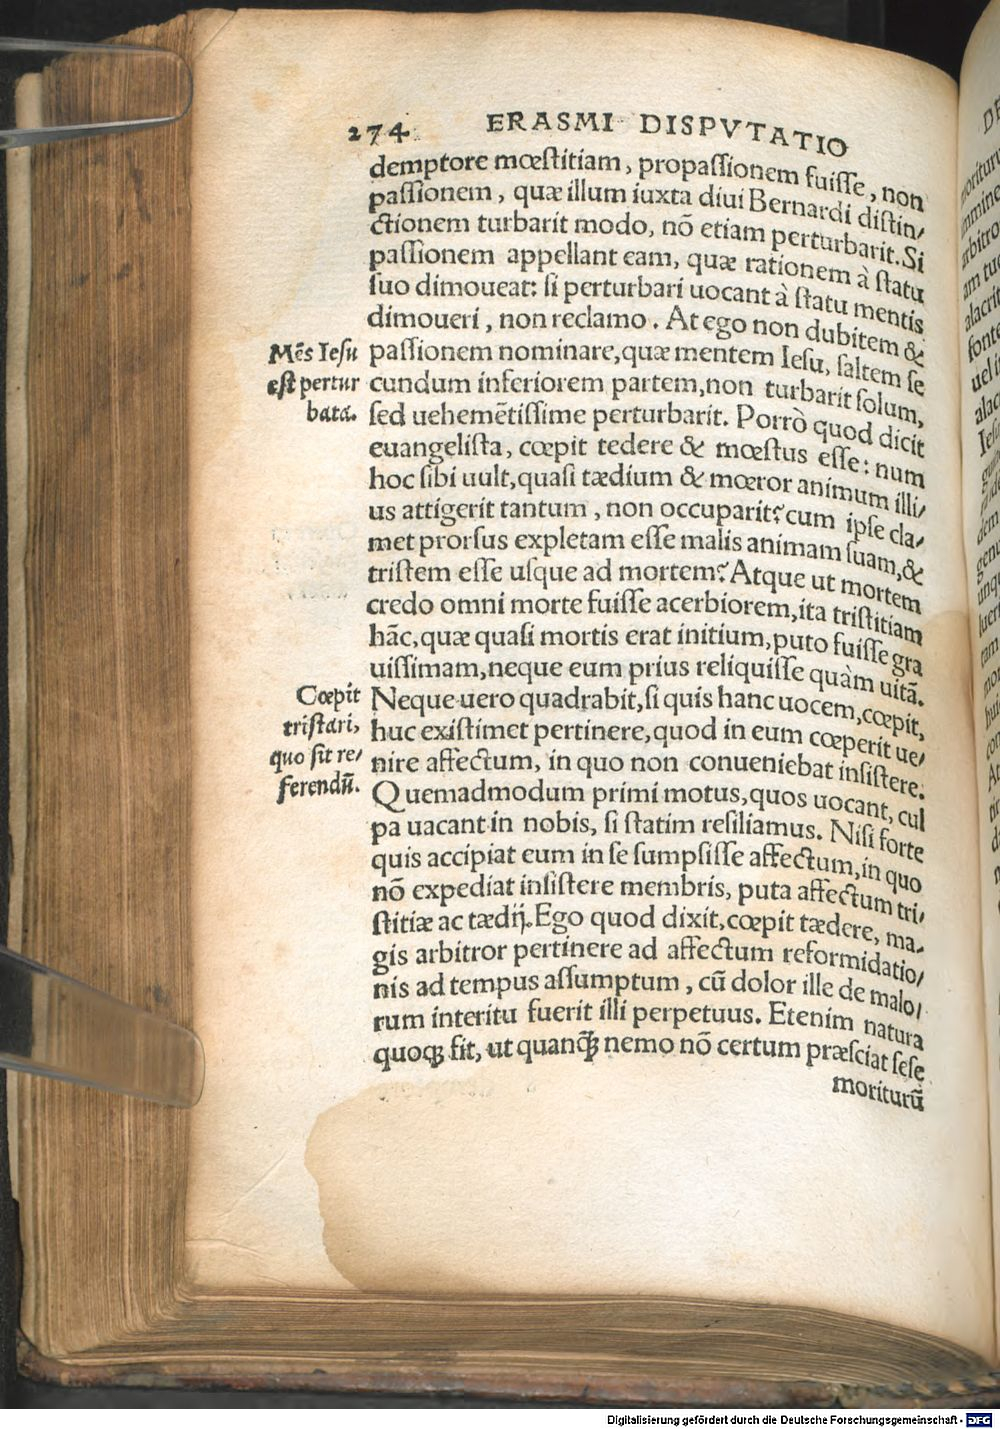 274 ERASMI DISPVTATIO
demptore mœstitiam, propaſſionem fuiſſe, non
paſſionem, quæ illum iuxta diui Bernardi diſtin/
ctionem turbarit modo, nõ etiam perturbarit. Si
paſſionem appellant eam, quæ rationem à ſtatu
ſuo dimoueat: ſi perturbari uocant à ſtatu mentis
dimoueri, non reclamo. At ego non dubitem &
Mẽs Ieſu
eſt pertur
bata.
paſſionem nominare, quæ mentem Ieſu, ſaltem ſe
cundum inferiorem partem, non turbarit ſolum,
ſed uehemẽtiſſime perturbarit. Porrò quod dicit
euangeliſta, cœpit tedere & mœſtus eſſe: num
hoc ſibi uult, quaſi tædium & mœror animum illi/
us attigerit tantum, non occuparit? cum ipſe cla/
met prorſus expletam eſſe malis animam ſuam, &
triſtem eſſe uſque ad mortem? Atque ut mortem
credo omni morte fuiſſe acerbiorem, ita triſtitiam
hãc, quæ quaſi mortis erat initium, puto fuiſſe gra
uiſſimam, neque eum prius reliquiſſe quàm uitã.
Cœpit
triſtari,
quo ſit re/
ferendũ.
Neque uero quadrabit, ſi quis hanc uocem, cœpit,
huc exiſtimet pertinere, quod in eum cœperit ue/
nire affectum, in quo non conueniebat inſiſtere.
Quemadmodum primi motus, quos uocant, cul
pa uacant in nobis, ſi ſtatim reſiliamus. Niſi forte
quis accipiat eum in ſe ſumpſiſſe affectum, in quo
nõ expediat inſiſtere membris, puta affectum tri/
ſtitiæ ac tædij. Ego quod dixit, cœpit tædere, ma/
gis arbitror pertinere ad affectum reformidatio/
nis ad tempus aſſumptum, cũ dolor ille de malo/
rum interitu fuerit illi perpetuus. Etenim natura
quoqꝫ fit, ut quanq̃ꝫ nemo nõ certum præſciat ſeſe
moriturũ
Digitalisierung gefördert durch die Deutsche Forschungsgemeinschaft - DFG